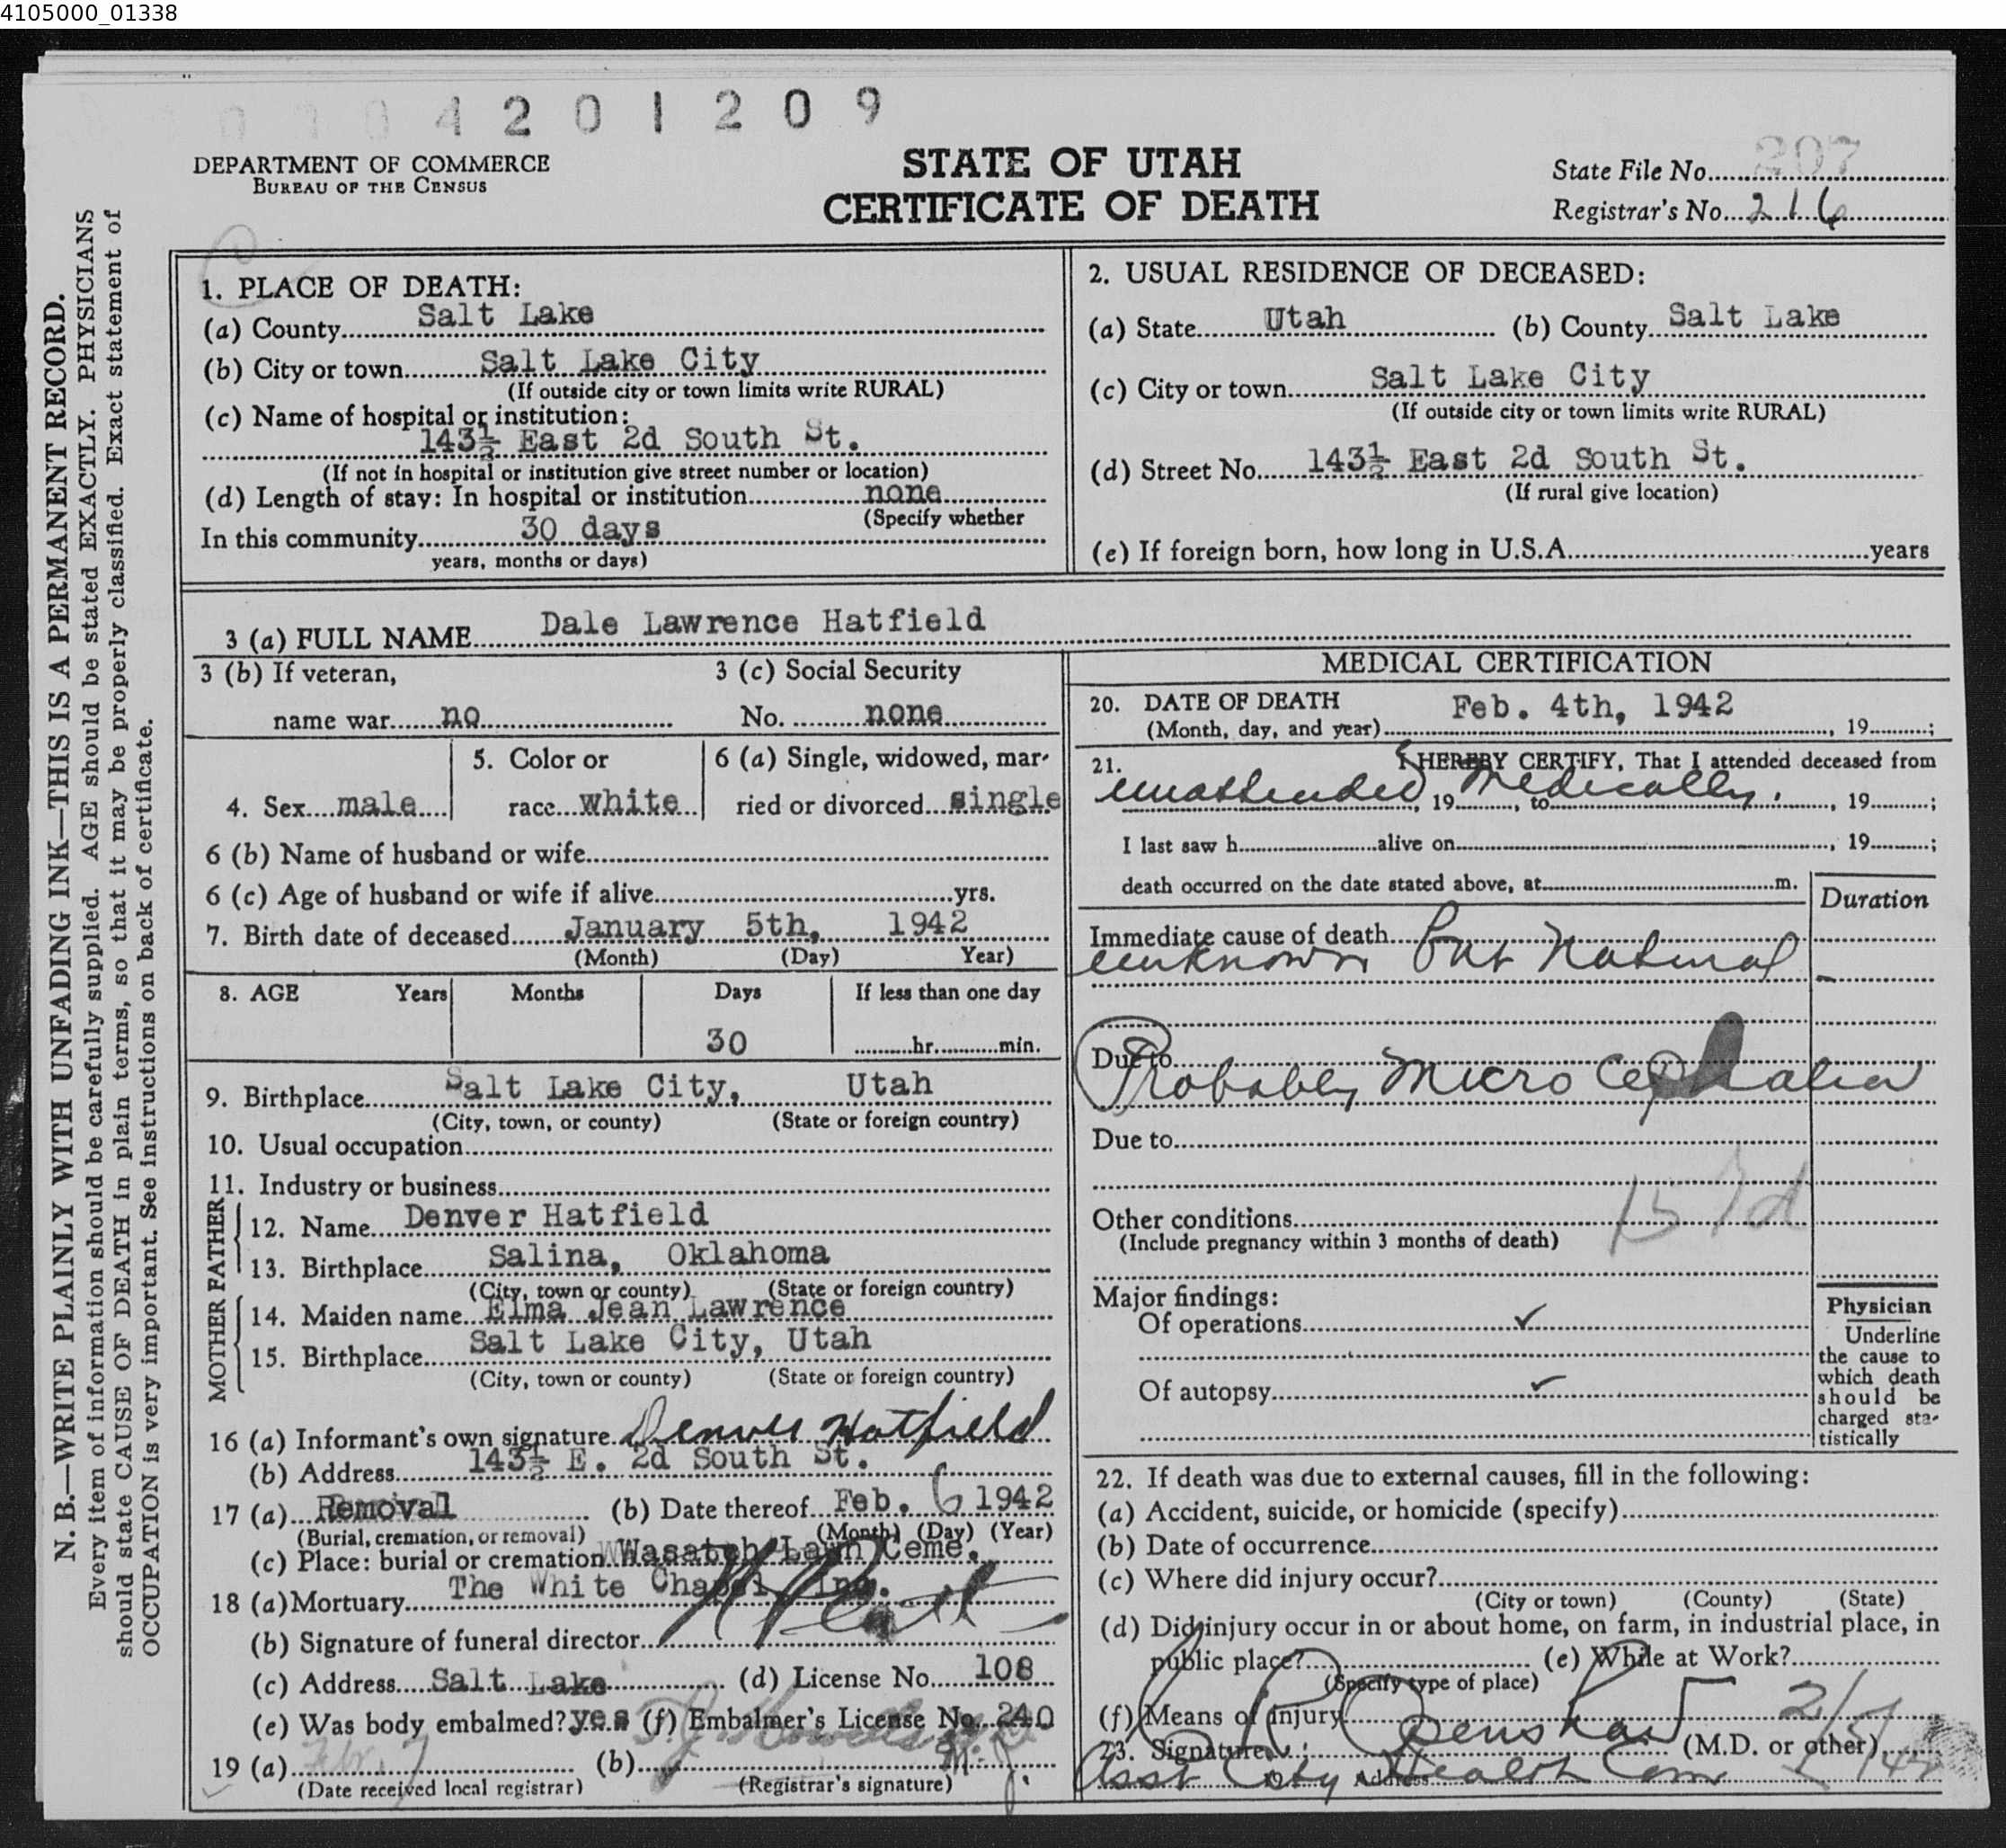 4105000_01338
4 2 0 1 2 0 9
DEPARTMENT OF COMMERCE
BUREAU OF THE CENSUS
STATE OF UTAH
CERTIFICATE OF DEATH
State File No. 207
Registrar's No. 216
N. B.—WRITE PLAINLY WITH UNFADING INK—THIS IS A PERMANENT RECORD.
Every item of information should be carefully supplied. AGE should be stated EXACTLY. PHYSICIANS
should state CAUSE OF DEATH in plain terms, so that it may be properly classified. Exact statement of
OCCUPATION is very important. See instructions on back of certificate.
1. PLACE OF DEATH:
(a) County Salt Lake
(b) City or town Salt Lake City
(If outside city or town limits write RURAL)
(c) Name of hospital or institution:
143½ East 2d South St.
(If not in hospital or institution give street number or location)
(d) Length of stay: In hospital or institution none
(Specify whether
In this community 30 days
years, months or days)
2. USUAL RESIDENCE OF DECEASED:
(a) State Utah (b) County Salt Lake
(c) City or town Salt Lake City
(If outside city or town limits write RURAL)
(d) Street No. 143½ East 2d South St.
(If rural give location)
(e) If foreign born, how long in U.S.A. years
3 (a) FULL NAME Dale Lawrence Hatfield
3 (b) If veteran, 3 (c) Social Security
name war no No. none
4. Sex male 5. Color or race white 6 (a) Single, widowed, married or divorced single
6 (b) Name of husband or wife
6 (c) Age of husband or wife if alive yrs.
7. Birth date of deceased January 5th, 1942
(Month) (Day) Year)
8. AGE Years Months Days If less than one day
30 hr. min.
9. Birthplace Salt Lake City, Utah
(City, town, or county) (State or foreign country)
10. Usual occupation
11. Industry or business
MOTHER FATHER
12. Name Denver Hatfield
13. Birthplace Salina, Oklahoma
(City, town or county) (State or foreign country)
14. Maiden name Elma Jean Lawrence
15. Birthplace Salt Lake City, Utah
(City, town or county) (State or foreign country)
16 (a) Informant's own signature Denver Hatfield
(b) Address 143½ E. 2d South St.
17 (a) Removal (b) Date thereof Feb. 6 1942
(Burial, cremation, or removal) (Month) (Day) (Year)
(c) Place: burial or cremation Wasatch Lawn Ceme.
18 (a) Mortuary The White Chapel Inc.
(b) Signature of funeral director
(c) Address Salt Lake (d) License No. 108
(e) Was body embalmed? yes (f) Embalmer's License No. 240
19 (a) Feb. 7 (b)
(Date received local registrar) (Registrar's signature)
MEDICAL CERTIFICATION
20. DATE OF DEATH Feb. 4th, 1942
(Month, day, and year) , 19 ;
21. I HEREBY CERTIFY, That I attended deceased from
unattended, 19 , to Medically. , 19 ;
I last saw h alive on , 19 ;
death occurred on the date stated above, at m.
Duration
Immediate cause of death But
unknown But Natural
Due to
Probably Micro Cephalia
Due to
157d
Other conditions
(Include pregnancy within 3 months of death)
Major findings:
Of operations ✓
Of autopsy ✓
Physician
Underline
the cause to
which death
should be
charged sta-
tistically
22. If death was due to external causes, fill in the following:
(a) Accident, suicide, or homicide (specify)
(b) Date of occurrence
(c) Where did injury occur?
(City or town) (County) (State)
(d) Did injury occur in or about home, on farm, in industrial place, in
public place? (e) While at Work?
(Specify type of place)
(f) Means of injury
23. Signature Openshaw (M.D. or other)
Asst City Health Com 2/5/42
Address